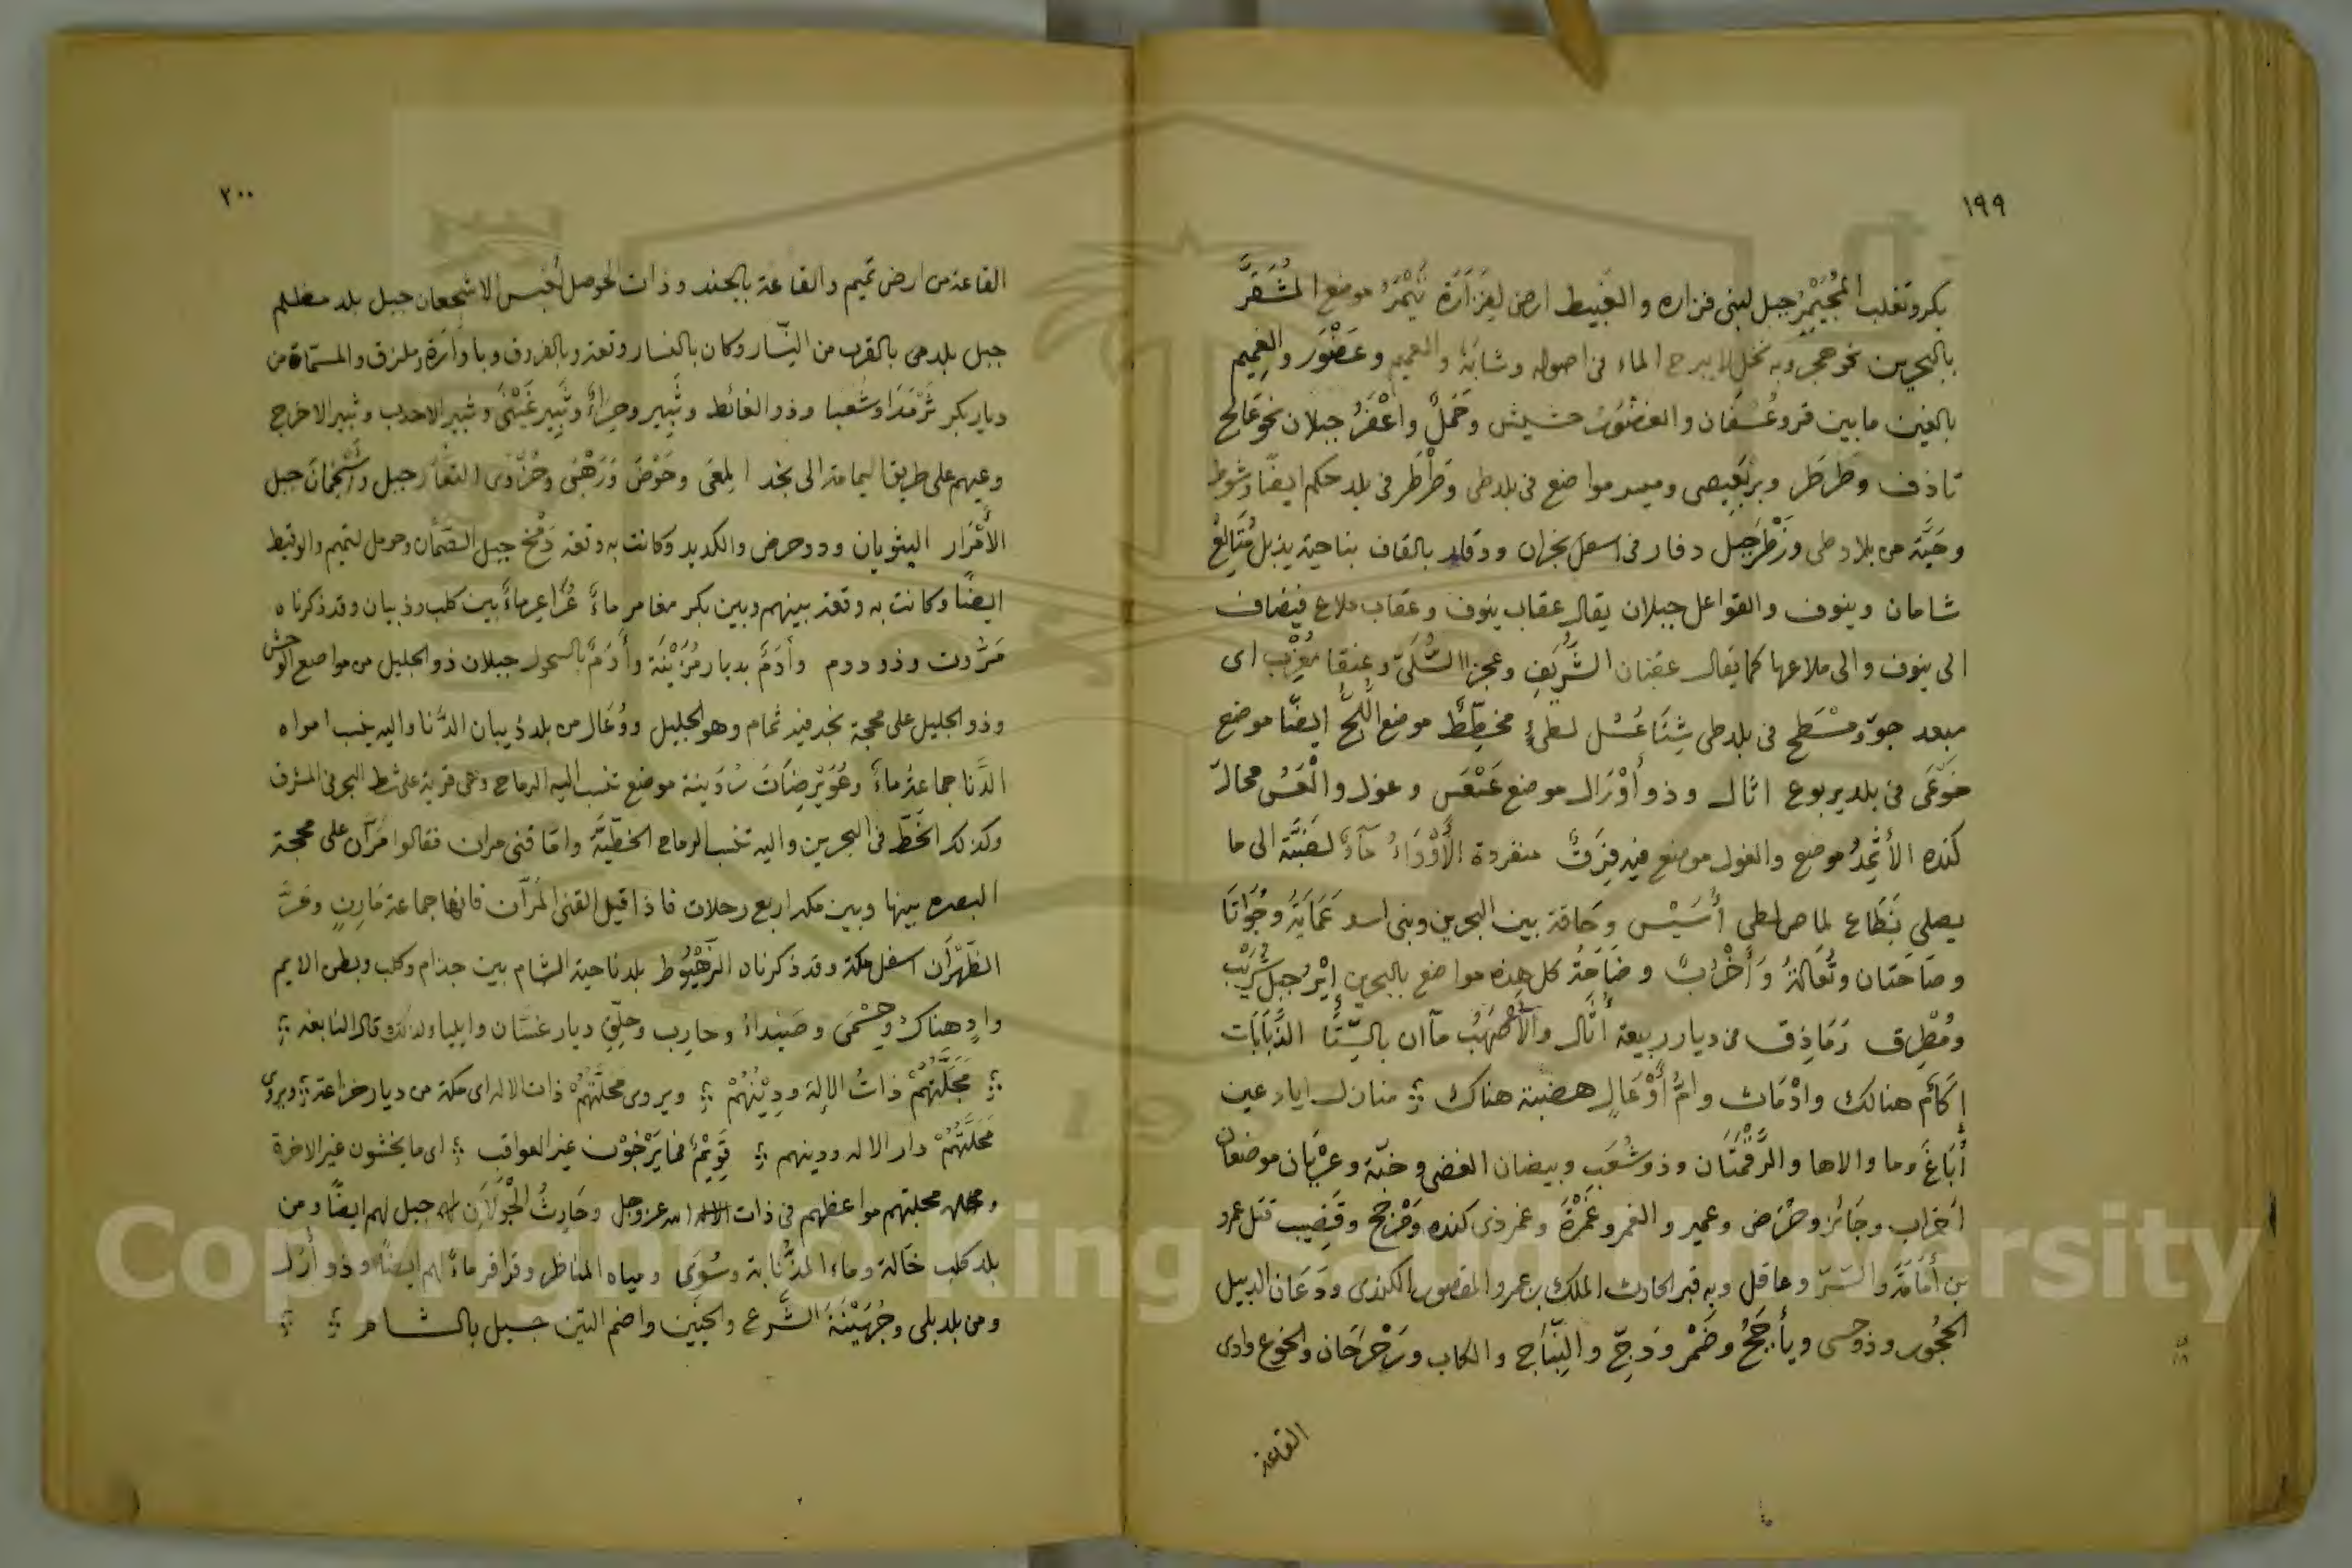 ١٩٩
بكر وتغلب المُجَيْمِر جبل لبنى فزاره والغَبيط ارض لفَزَارَة يَثْمَرُ موضع المُشَقَّر
بالبحرين نحو هجر وبه نخل لا يبرح الماء فى اصوله وشابَة والعميم وعَضْوَر والغميم
بالغين مابين قر وعُسفان والغضْوَر حشيش وحَمَلٌ واعْفَرُ جبلان نحو عالج
تاذف وطَرطَر وبَربَعيص وميسر مواضع فى بلد طى وطَرْطَر فى بلد حكم ايضًا وشوط
وحَيَّة من بلاد طى وزَظَر جبل دفار فى اسفل نجران ودقار بالقاف بناحية يذبل مُتَالِعُ
شامان وينوف والقواعل جبلان يقال عقاب ينوف وعقاب ملاع فيضاف
الى ينوف والى ملاعها كما يقال عقبان الشُّرَيف وعجزا الشُّلَىّ وعنقا مُغْرِب اى
مبعد جوّ ومسْطَح فى بلد طى شِتَا عُسُل لطىءٍ مخطِّطٌ موضع اللُّجُّ ايضًا موضع
خَوْعَى فى بلد يربوع اثال وذو أَوْرَال موضع عَسْعَس وعول والْعَسُ محالّ
كنده الأَثْمِدُ موضع والغول موضع فيه فِرَقٌ منفردة الأَوْدَاءُ مآءٌ لضَبَّة الى ما
يصلى بَنطَاع لماص لطى أُسَيْس وحَاقة بين البحرين وبنى اسد عَمَايَة وجُوَاثَا
وصَاحَتان وثُعَالَةُ وَأَخْرُب وضَاحَةُ كل هذه مواضع بالبحرين إيْر جبل شُرَبْب
ومُطْرِق رَمَاذِق من ديار ربيعة أُثَال والأَصْهَبُ مآان بالسِّتَا الذَّبَابَات
إكَامٌ هنالك وادْمَاث وامُّ أَوْعَالٍ هضبة هناك ؞ منازل اياد عين
أُبَاغَ وما والاها والرَّقْمَتَان وذو شُعَب وبيضان الغضى وخبّة وعِرْبَان موضعان
اخراب وجَائز وحُرَض وعمير والغمر وغَمْرَة وغمر ذى كنده وَمَرْجَح وقَضِيب قتل عمرو
بن أُمَامَة والسّتر وعاقل وبه قبر الحارث الملك بن عمرو المقصور الكندى ودَعَان الدبيل
الحجُور وذو حسى ويأجَجُ وضَمْر ودَجّ والنِّبَاج والكاب ورَحْرَحَان والخوع وادى
القاعة
٢٠٠
القاعة من ارض تميم والقاعة بالجند وذات الحوصل لخبس الاشجعان جبل بلد مظلم
جبل بلدمى بالقرب من النِّسار وكان بالنسار وقعة وبالفروق وبأوارة وملزق والمسمّاة من
ديار بكر ثَرْمَدَا وشعبا وذو الغائط وثَبير وحِرَاءُ وثَبِير غَيْنَى وثبير الاحدب وثبير الاعرج
وعيهم على طريق اليمامة الى نجد المِعَى وحَوْضَ وَرَهْبَى وحُزْوَى النقار جبل واسْجُمان جبل
الأَمْرَار اليثويان ودوحرض والكديد وكانت به وقعة دَمْخ جبل الصَّمَّان وحومل لتميم والوقيط
ايضًا وكانت به وقعة بينهم وبين بكر مغامر ماءً عُرَاعِر ماءٌ بين كلب وذبيان وقد ذكرناه
مَرَّوت وذو دوم وأَدَمَّ بديار مُزَيْنَة وأَدَمٌ بالسحول جبلان ذو الجليل من مواضع الوحش
وذو الجليل على محجة نجد فيه ثمام وهو الجليل ووُعَال من بلد ذبيان الدَّنا واليه ينسب امواه
الدَّنا جماعة ماءً وعُوَيْرِضَات رُدَينة موضع تنسب اليه الرماح وهى قرية على شط البحر فى المشرق
وكذلك الخَطّ فى البحرين واليه تنسب الرماح الخطّيَّة وامّا قنى مران فقالوا مَرّان على محجة
البصره بينها وبين مكه اربع رحلات فاذا قيل القنى المُرّان فانها جماعة مَارِنٍ ومَرُّ
الظَهْرَان اسفل مكة وقد ذكرناه الزَهْيُوط بلد ناحية الشام بين جذام وكلب وبطن الايم
وادٍ هناك وحِسْمَى وصَيْدَاءُ وحارب وجلّقٍ ديار غسّان وايلياء ولذلك قال النابغه ؞
؞ مَجَلَّتُهُمْ ذاتُ الإِلهِ ودِيْنُهُمْ ؞ ويروى محلّتُهُمْ ذات الاله اى مكة من ديار خزاعة ؞ ويروى
مَحَلَّتُهُمْ دار الاله ودينهم ؞ قَوِيْمٌ فما يَرْجُوْن غير العواقب ؞ اى ما يخشون غير الاخرة
ومجلتهم مواعظهم فى ذات الله عز وجل وحَارِثُ الْجَوْلَانِ جبل لهم ايضًا ومن
بلد كلب خالة وماء المذُنَابة وسُوَى ومياه المناظر وقراقر ماءٌ لهم ايضًا وذو أُرُل
ومن بلد بلى وجُهَيْنَة الشَّرع والجبَين واضم التين جبل بالشام ؞ ؞
Copyright © King Saud University
1957